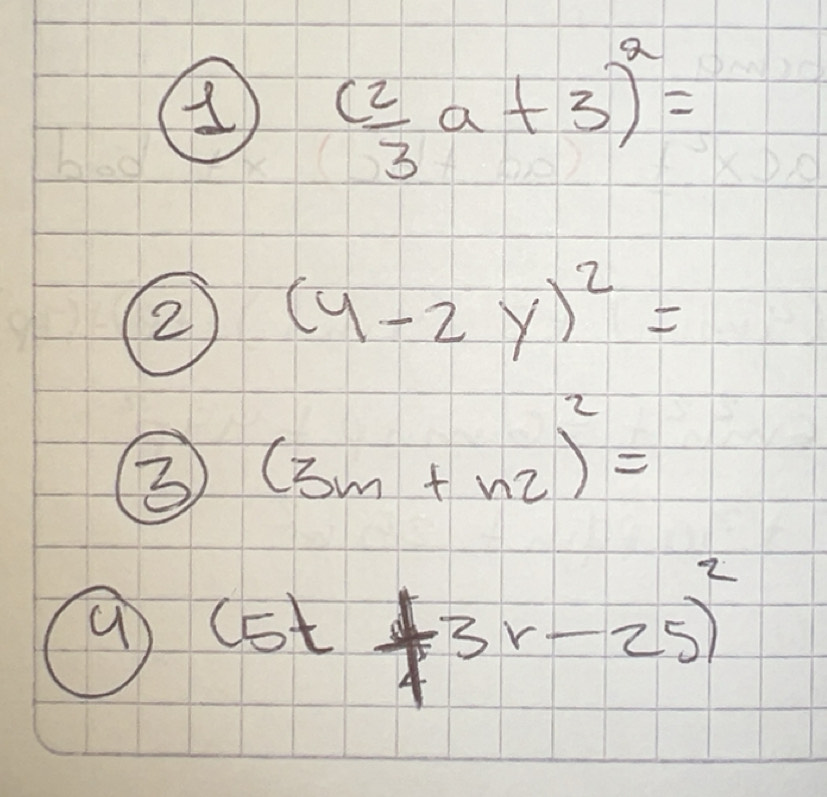 ① (2/3 a + 3)² =
② (4 - 2 y)² =
③ (3m + nz)² =
④ (5t + 3r - 25)²